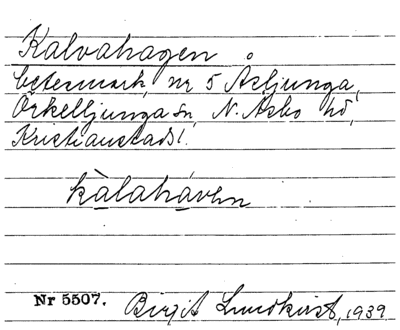 Kalvahagen
betesmark, nr 5 Åsljunga,
Örkelljunga sn, N. Åsbo hd,
Kristianstads l.
kàlahávɘn
Nr 5507. Birgit Lundkvist, 1939